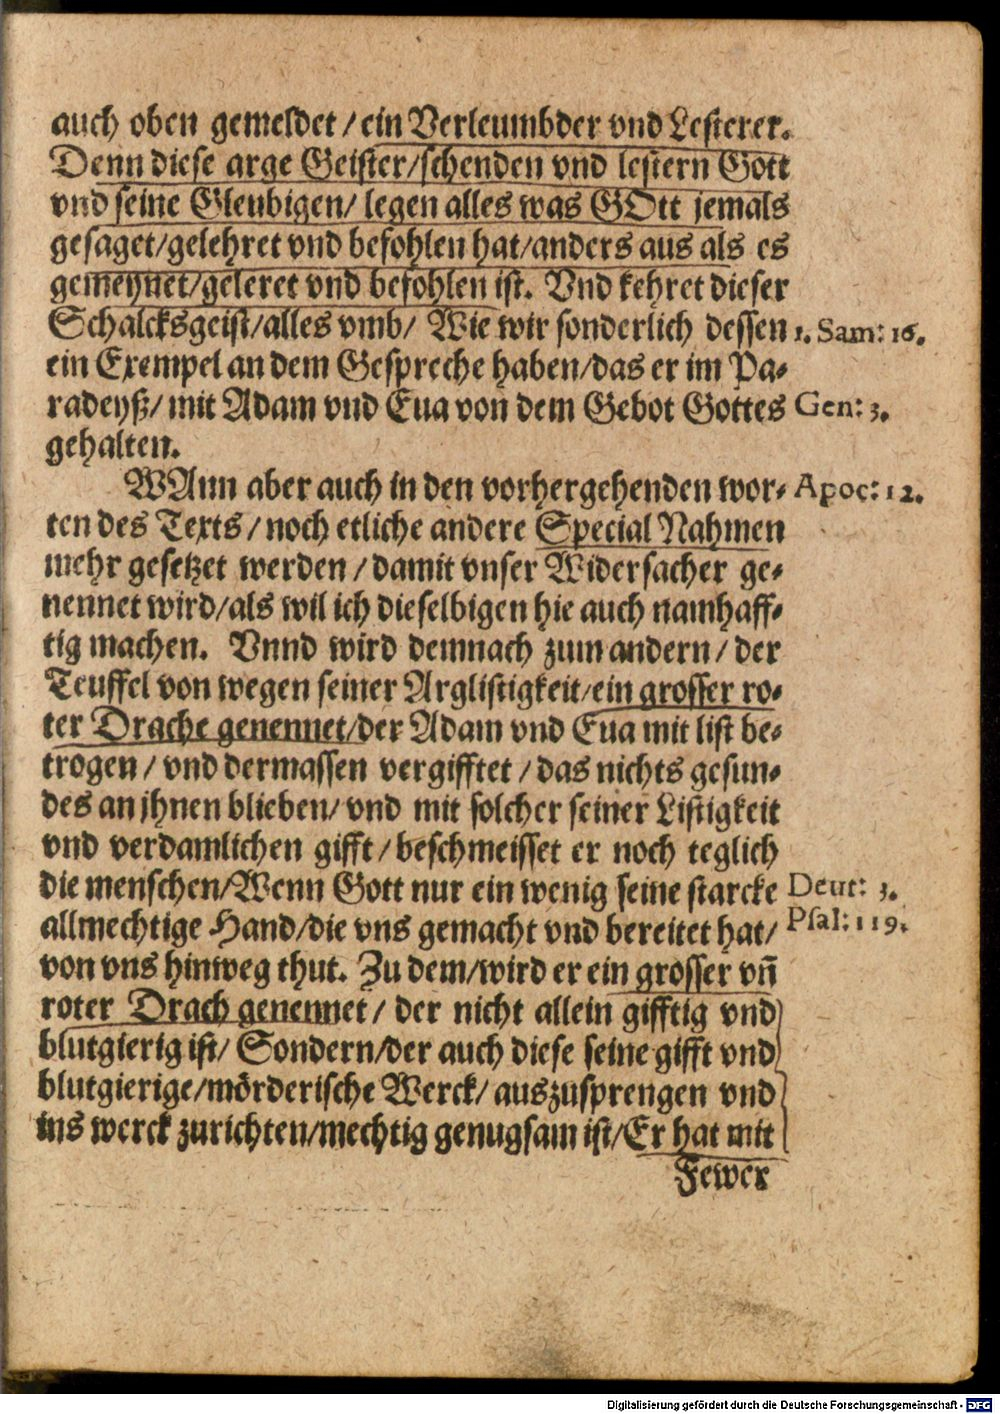 auch oben gemeldet / ein Verleumbder vnd Lesterer.
Denn diese arge Geister/schenden vnd lestern Gott
vnd seine Gleubigen/ legen alles was GOtt jemals
gesaget/gelehret vnd befohlen hat/anders aus als es
gemeynet/geleret vnd befohlen ist. Vnd kehret dieser
Schalcksgeist/alles vmb/ Wie wir sonderlich dessen 1. Sam: 16.
ein Exempel an dem Gespreche haben/das er im Pa-
radeyß/ mit Adam vnd Eua von dem Gebot Gottes Gen: 3.
gehalten.
WAnn aber auch in den vorhergehenden wor- Apoc: 12.
ten des Texts / noch etliche andere Special Nahmen
mehr gesetzet werden / damit vnser Widersacher ge-
nennet wird/als wil ich dieselbigen hie auch namhaff-
tig machen. Vnnd wird demnach zum andern / der
Teuffel von wegen seiner Arglistigkeit/ein grosser ro-
ter Drache genennet/der Adam vnd Eua mit list be-
trogen / vnd dermassen vergifftet / das nichts gesun-
des an jhnen blieben/ vnd mit solcher seiner Listigkeit
vnd verdamlichen gifft / beschmeisset er noch teglich
die menschen/Wenn Gott nur ein wenig seine starcke Deut: 3.
allmechtige Hand/die vns gemacht vnd bereitet hat/ Psal: 119.
von vns hinweg thut. Zu dem/wird er ein grosser vñ
roter Drach genennet / der nicht allein gifftig vnd
blutgierig ist/ Sondern/der auch diese seine gifft vnd
blutgierige/mörderische Werck/ auszusprengen vnd
ins werck zurichten/mechtig genugsam ist/Er hat mit
Fewer
Digitalisierung gefördert durch die Deutsche Forschungsgemeinschaft - DFG